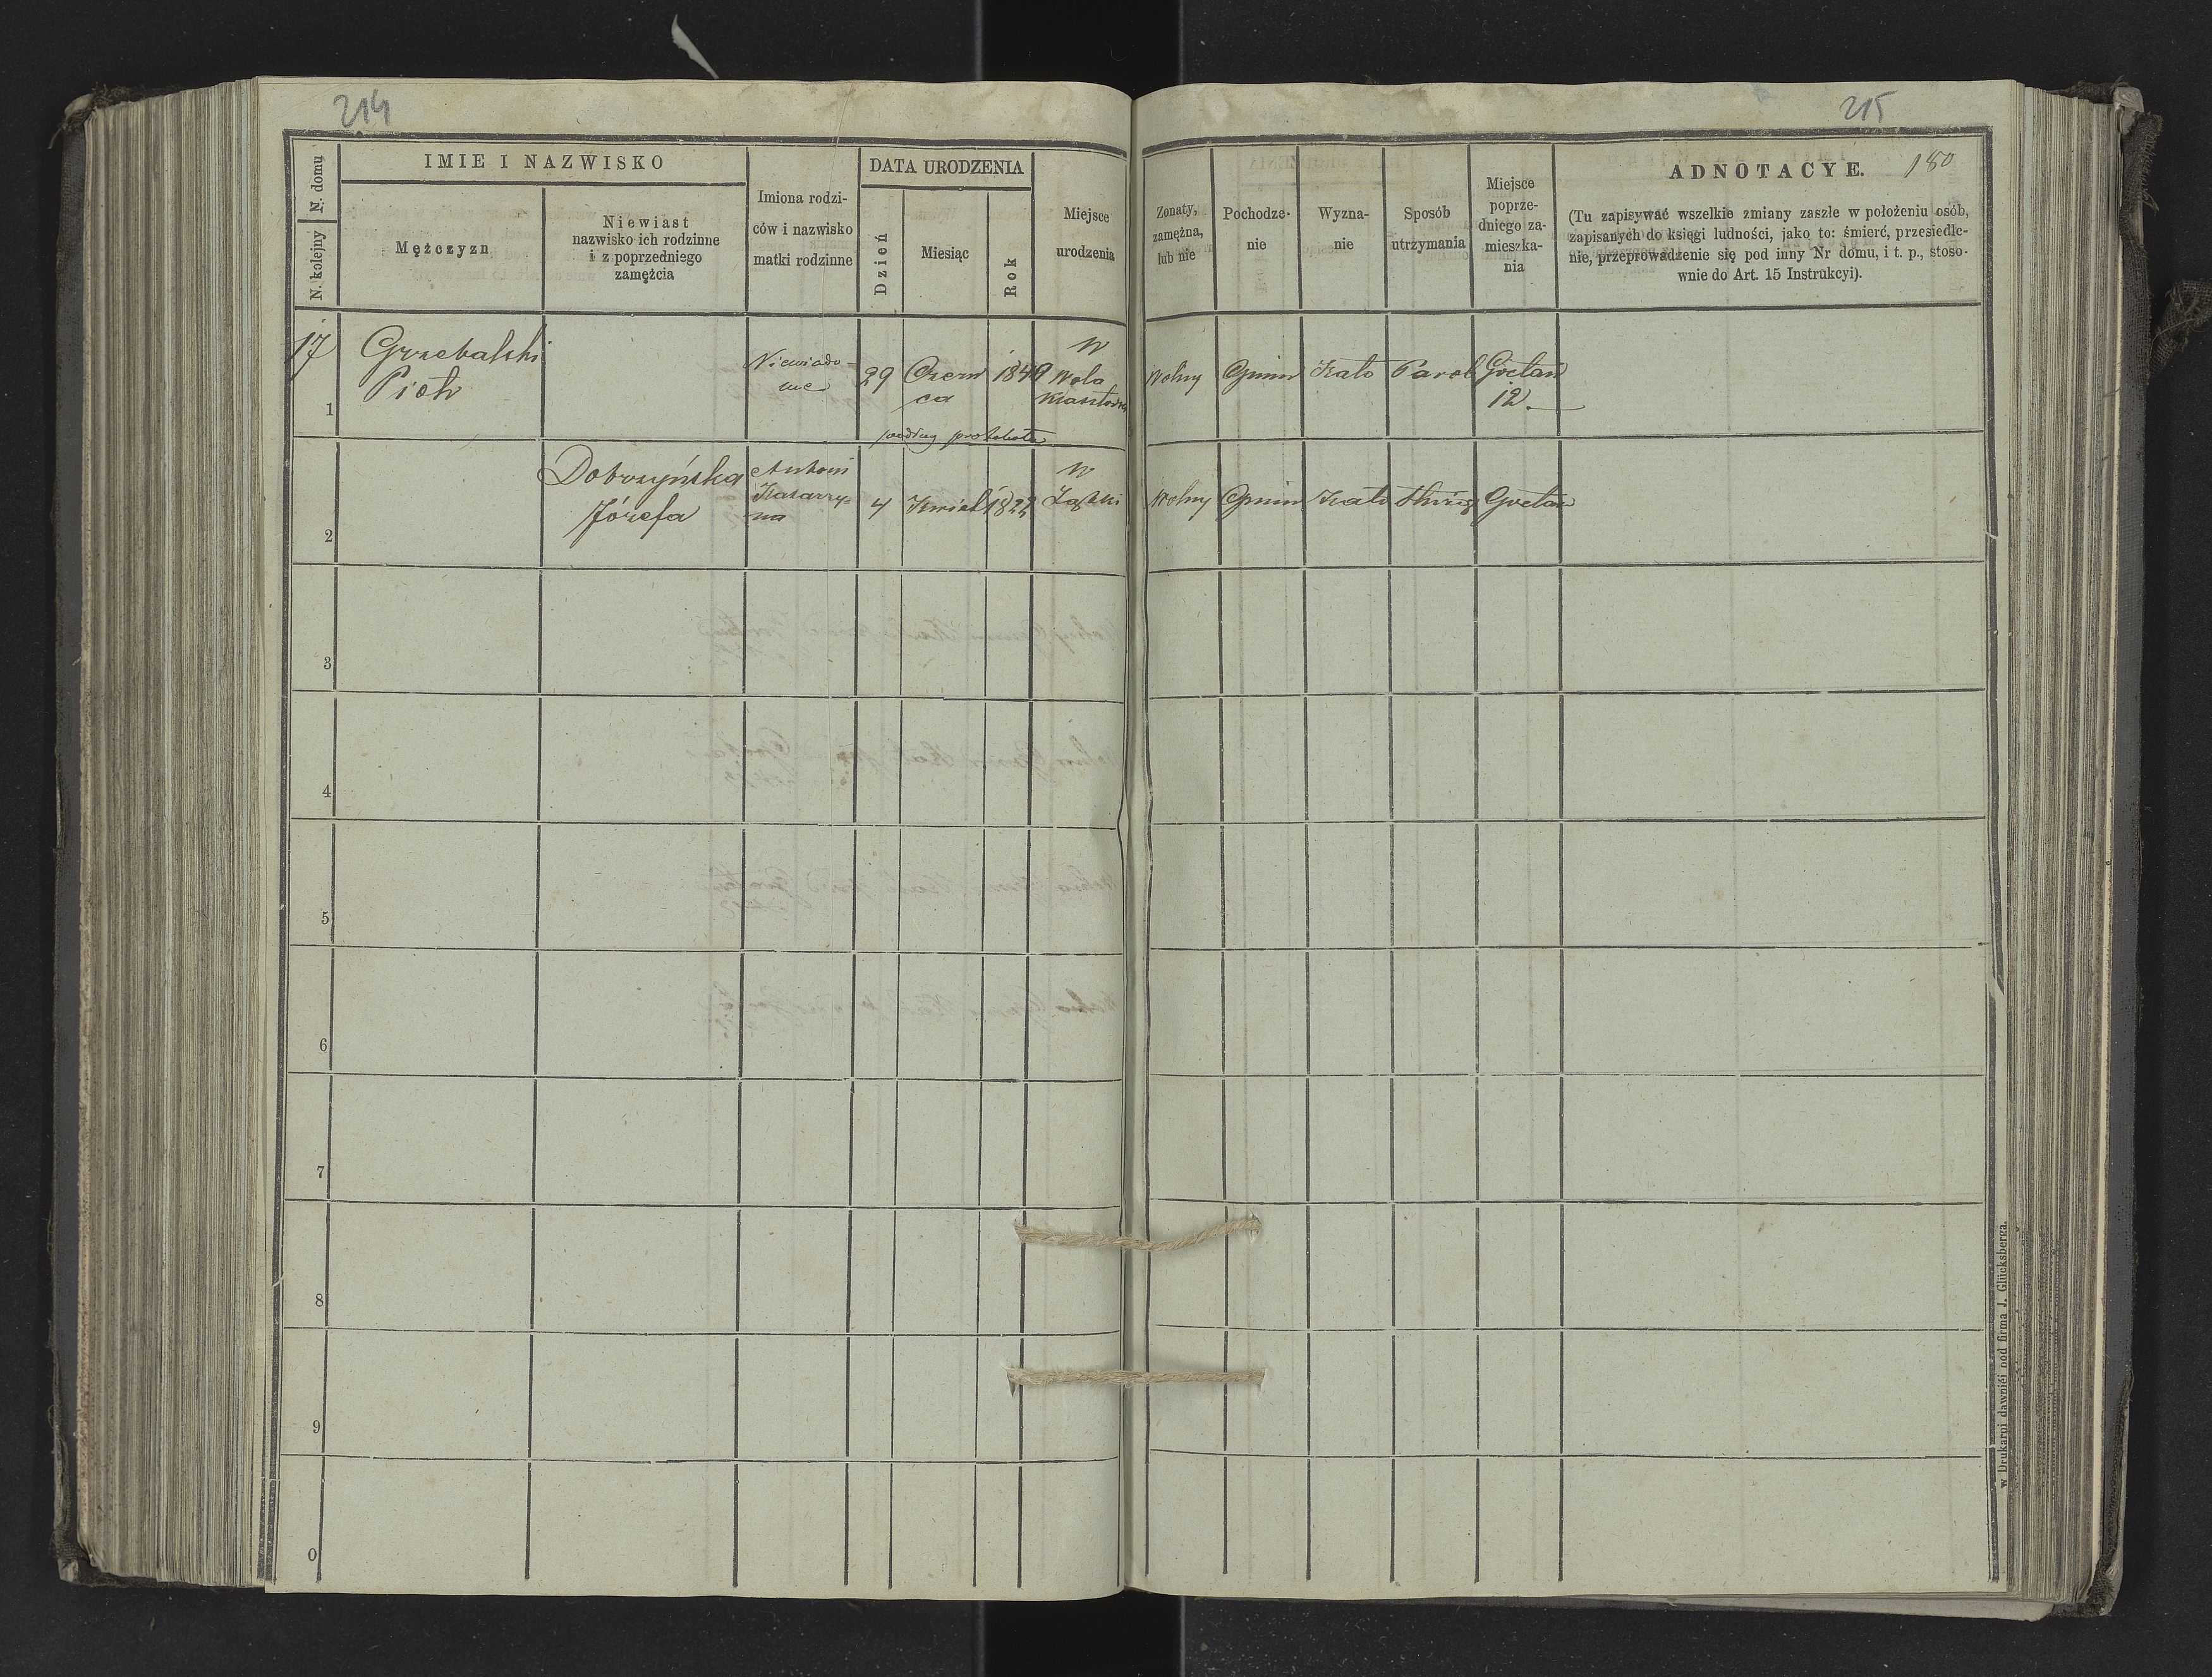 214
215
N. kolejny N. domu
IMIE I NAZWISKO
Mężczyzn
Niewiast
nazwisko ich rodzinne
i z poprzedniego
zamężcia
Imiona rodzi-
ców i nazwisko
matki rodzinne
DATA URODZENIA
Dzień
Miesiąc
Rok
Miejsce
urodzenia
Zonaty,
zamężna,
lub nie
Pochodze-
nie
Wyzna-
nie
Sposób
utrzymania
Miejsce
poprze-
dniego za-
mieszka-
nia
ADNOTACYE.
180
(Tu zapisywać wszelkie zmiany zaszłe w położeniu osób,
zapisanych do księgi ludności, jako to: śmierć, przesiedle-
nie, przeprowadzenie się pod inny Nr domu, i t. p., stoso-
wnie do Art. 15 Instrukcyi).
17
1
Grzebalski
Piotr
Niewiado-
me
29
Czerw
ca
w
Wola
podług
Wolny
Gmin
Kato
Parob
12.
2
Dobrzyńska
Józefa
Antoni
Katarzy-
na
4
Kwiet
1822
w
Ząbki
Wolny
Gmin
Kato
3
4
5
6
7
8
9
0
w Drukarni dawniéj pod firmą J. Glücksberga.